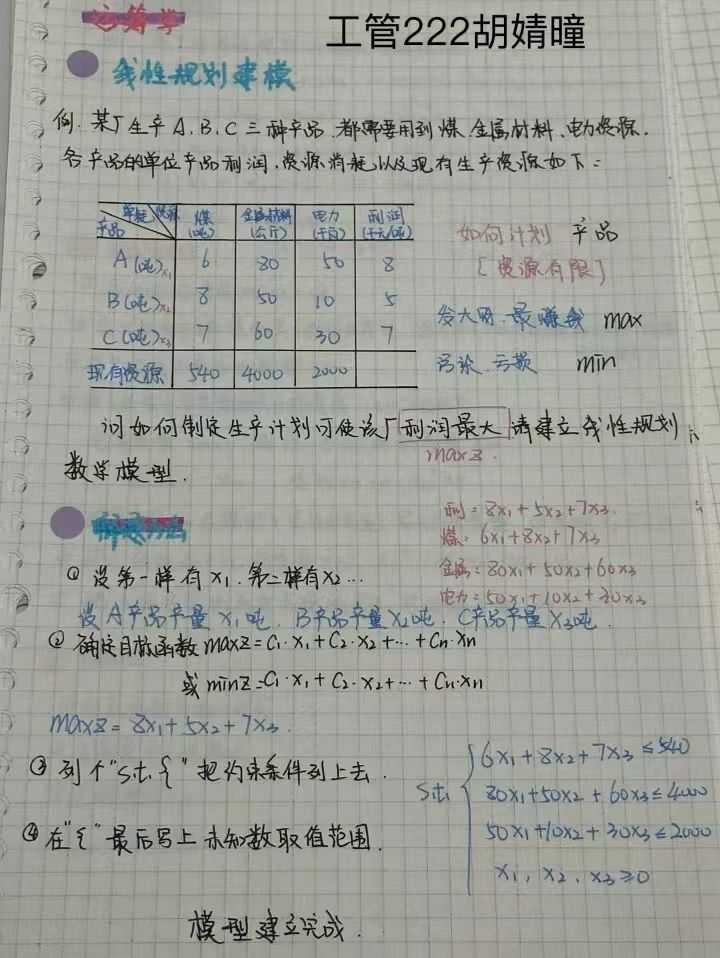 运筹学
工管222胡婧曈
线性规划建模
例.某厂生产A、B、C三种产品,都需要用到煤、金属材料、电力资源.
各产品的单位产品利润、资源消耗以及现有生产资源如下:
单耗 资源 产品 煤(吨) 金属材料(公斤) 电力(千瓦) 利润(千元/吨)
A(吨)x₁ 6 80 50 8
B(吨)x₂ 8 50 10 5
C(吨)x₃ 7 60 30 7
现有资源 540 4000 2000
如何计划 产品
[资源有限]
发大财、最赚钱 max
亏损、亏欠 min
问如何制定生产计划可使该厂利润最大 请建立线性规划
maxz.
数学模型.
解题方法
利=8x₁+5x₂+7x₃.
煤:6x₁+8x₂+7x₃
金属:80x₁+50x₂+60x₃
电力:50x₁+10x₂+30x₃
①设第一样有x₁.第二样有x₂…
设A产品产量x₁吨.B产品产量x₂吨.C产品产量x₃吨.
②确定目标函数maxz=C₁·x₁+C₂·x₂+…+Cn·xn
或minz=C₁·x₁+C₂·x₂+…+Cn·xn
maxz=8x₁+5x₂+7x₃.
③列个"s.t.{"把约束条件列上去.
④在"{"最后写上未知数取值范围.
s.t. { 6x₁+8x₂+7x₃≤540
80x₁+50x₂+60x₃≤4000
50x₁+10x₂+30x₃≤2000
x₁,x₂,x₃≥0
模型建立完成.